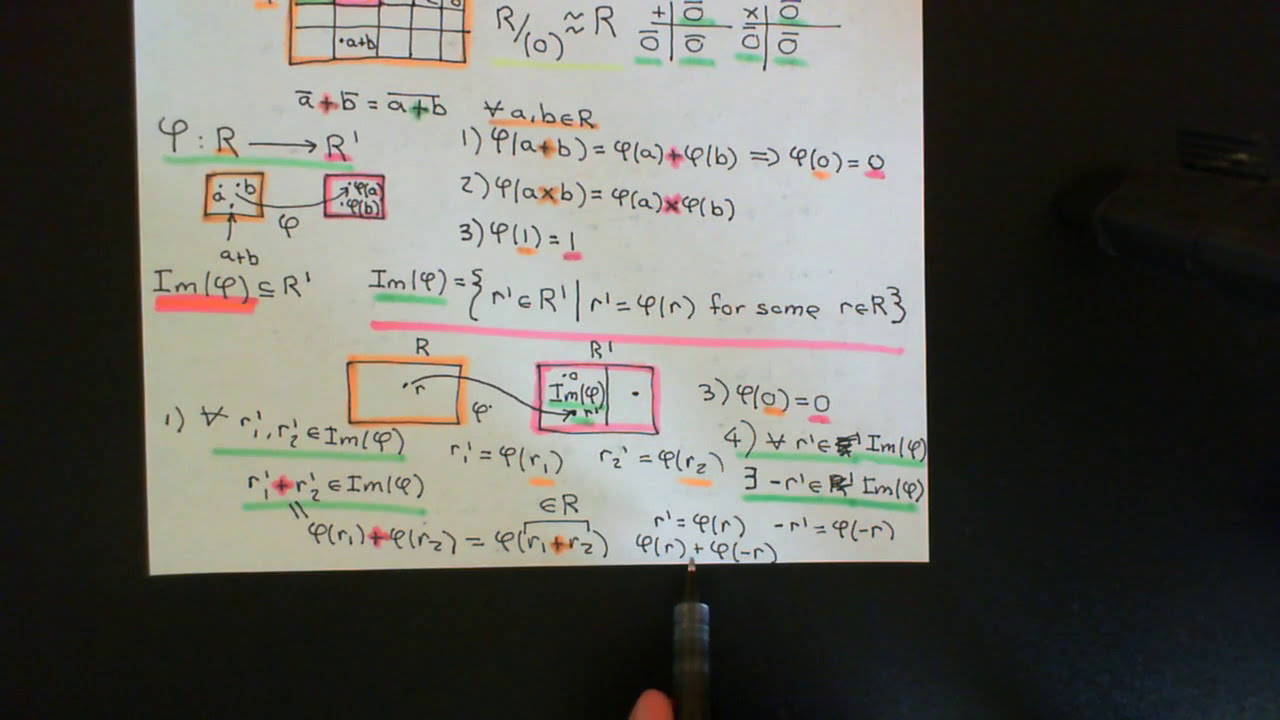 ·a+b
R/(0) ≈ R
+ 0̅
0̅ 0̅
× 0̅
0̅ 0̅
a̅ + b̅ = a̅+̅b̅
∀ a,b∈R
φ : R ⟶ R'
1) φ(a+b) = φ(a)+φ(b) ⇒ φ(0) = 0
2) φ(a×b) = φ(a)×φ(b)
3) φ(1) = 1
a b
φ(a)
φ(b)
φ
a+b
Im(φ) ⊆ R'
Im(φ) = { r'∈R' | r' = φ(r) for some r∈R }
R
R'
·r
φ
·0
Im(φ)
r'
3) φ(0) = 0
1) ∀ r₁', r₂' ∈ Im(φ)
r₁' = φ(r₁) r₂' = φ(r₂)
r₁' + r₂' ∈ Im(φ)
=
φ(r₁)+φ(r₂) = φ(r₁+r₂)
∈R
4) ∀ r'∈ Im(φ)
∃ -r'∈ Im(φ)
r' = φ(r) -r' = φ(-r)
φ(r) + φ(-r)